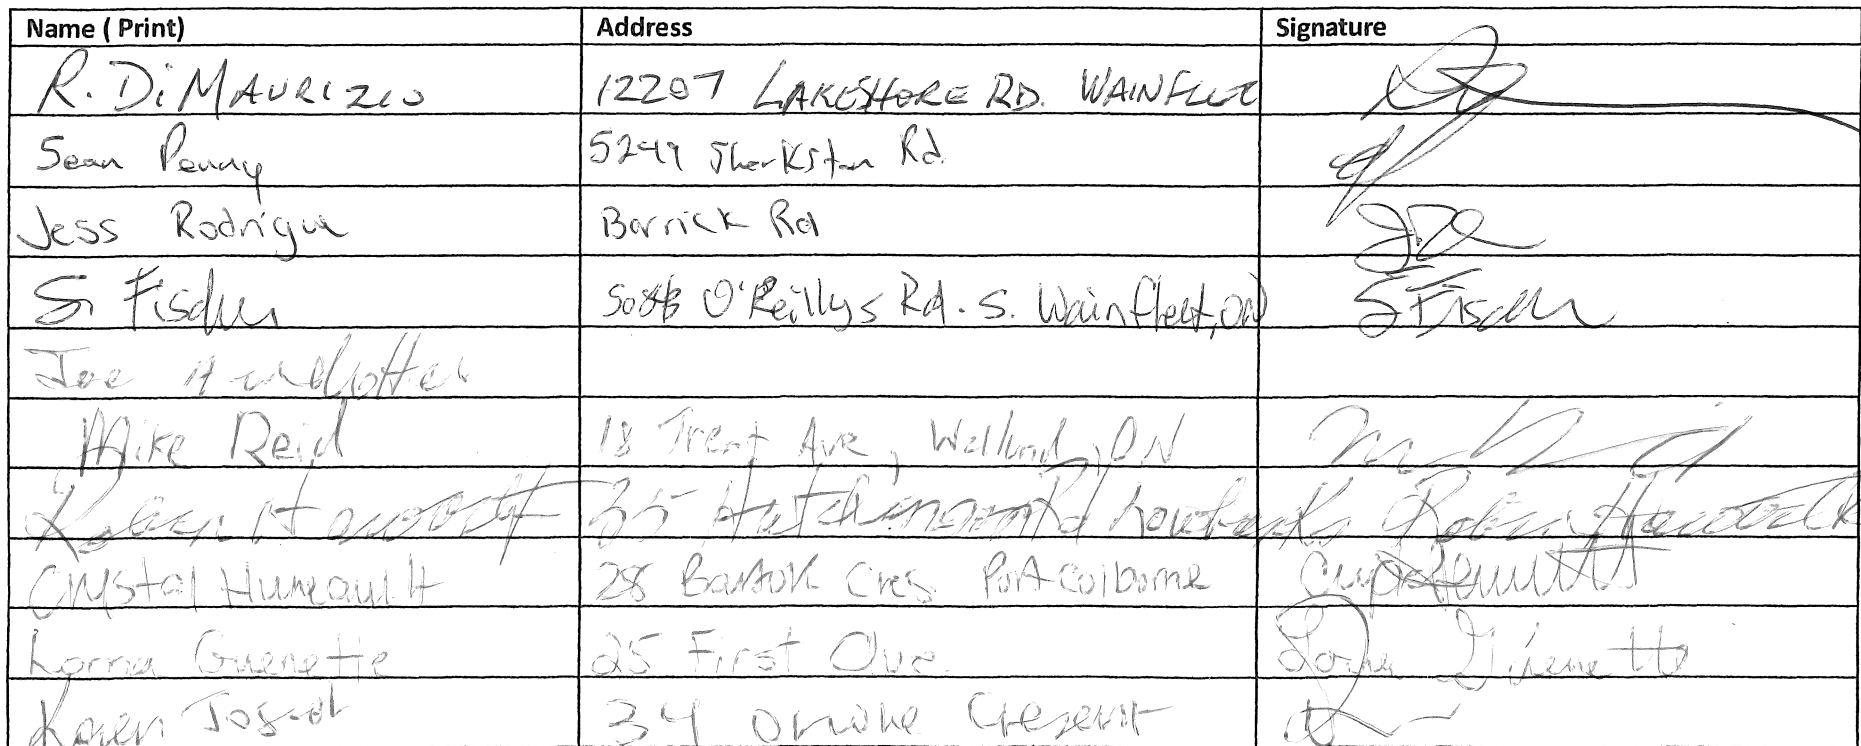 Name ( Print) Address Signature
R. Di MAURIZIO 12207 LAKESHORE RD. WAINFLEET
Sean Penny 5249 Sherkston Rd
Jess Rodrigue Barrick Rd
S. Fischer O'Reillys Rd. S. Wainfleet, ON S Fischer
Joe
Mike Reid 18 Trent Ave, Welland, ON
Haworth 35 Hutchinson Rd Lowbanks
Crystal Huneault 28 Bartok Cres Port Colborne
Lorna Guenette 25 First Ave. Guenette
Karen 34 Cresent